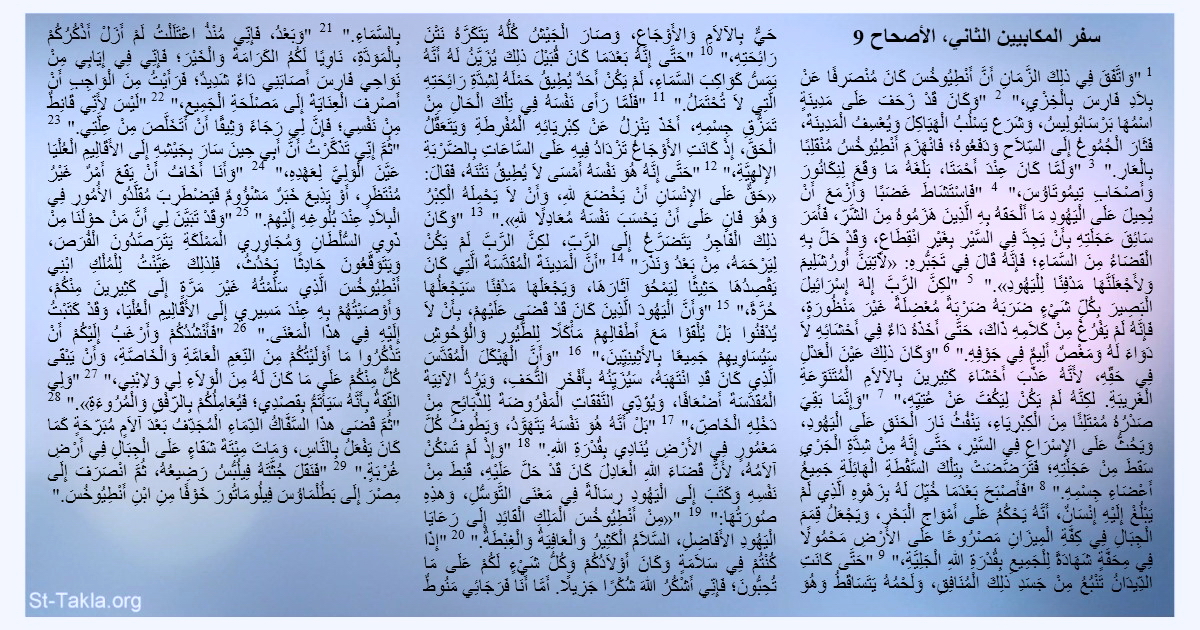 سفر المكابيين الثاني، الأصحاح 9
1 "وَاتَّفَقَ فِي ذلِكَ الزَّمَانِ أَنَّ أَنْطِيُوخُسَ كَانَ مُنْصَرِفًا عَنْ
بِلاَدِ فَارِسَ بِالْخِزْيِ،" 2 "وَكَانَ قَدْ زَحَفَ عَلَى مَدِينَةٍ
اسْمُهَا بَرْسَابُولِيسُ، وَشَرَعَ يَسْلُبُ الْهَيَاكِلَ وَيُعْسِفُ الْمَدِينَةَ،
فَثَارَ الْجُمُوعُ إِلَى السِّلاَحِ وَدَفَعُوهُ، فَانْهَزَمَ أَنْطِيُوخُسُ مُنْقَلِبًا
بِالْعَارِ." 3 "وَلَمَّا كَانَ عِنْدَ أَحْمَتَا، بَلَغَهُ مَا وَقَعَ لِنِكَانُورَ
وَأَصْحَابِ تِيمُوتَاوُسَ،" 4 "فَاسْتَشَاطَ غَضَبًا وَأَزْمَعَ أَنْ
يُحِيلَ عَلَى الْيَهُودِ مَا أَلْحَقَهُ بِهِ الَّذِينَ هَزَمُوهُ مِنَ الشَّرِّ، فَأَمَرَ
سَائِقَ عَجَلَتِهِ بِأَنْ يَجِدَّ فِي السَّيْرِ بِغَيْرِ انْقِطَاعٍ، وَقَدْ حَلَّ بِهِ
الْقَضَاءُ مِنَ السَّمَاءِ؛ فَإِنَّهُ قَالَ فِي تَجَبُّرِهِ: «لآتِيَنَّ أُورُشَلِيمَ
وَلأَجْعَلَنَّهَا مَدْفِنًا لِلْيَهُودِ»." 5 "لكِنَّ الرَّبَّ إِلهَ إِسْرَائِيلَ
الْبَصِيرَ بِكُلِّ شَيْءٍ ضَرَبَهُ ضَرْبَةً مُعْضِلَةً غَيْرَ مَنْظُورَةٍ،
فَإِنَّهُ لَمْ يَفْرُغْ مِنْ كَلاَمِهِ ذَاكَ، حَتَّى أَخَذَهُ دَاءٌ فِي أَحْشَائِهِ لاَ
دَوَاءَ لَهُ وَمَغْصٌ أَلِيمٌ فِي جَوْفِهِ." 6 "وَكَانَ ذلِكَ عَيْنَ الْعَدْلِ
فِي حَقِّهِ، لأَنَّهُ عَذَّبَ أَحْشَاءَ كَثِيرِينَ بِالآلاَمِ الْمُتَنَوِّعَةِ
الْغَرِيبَةِ. لكِنَّهُ لَمْ يَكُنْ لِيَكُفَّ عَنْ عُتِيِّهِ،" 7 "وَإِنَّمَا بَقِيَ
صَدْرُهُ مُمْتَلِئًا مِنَ الْكِبْرِيَاءِ، يَنْفُثُ نَارَ الْحَنَقِ عَلَى الْيَهُودِ،
وَيَحُثُّ عَلَى الإِسْرَاعِ فِي السَّيْرِ، حَتَّى إِنَّهُ مِنْ شِدَّةِ الْجَرْيِ
سَقَطَ مِنْ عَجَلَتِهِ؛ فَتَرَضَّضَتْ بِتِلْكَ السَّقْطَةِ الْهَائِلَةِ جَمِيعُ
أَعْضَاءِ جِسْمِهِ." 8 "فَأَصْبَحَ بَعْدَمَا خُيِّلَ لَهُ بِزَهْوِهِ الَّذِي لَمْ
يَبْلُغْ إِلَيْهِ إِنْسَانٌ، أَنَّهُ يَحْكُمُ عَلَى أَمْوَاجِ الْبَحْرِ، وَيَجْعَلُ قِمَمَ
الْجِبَالِ فِي كِفَّةِ الْمِيزَانِ مَصْرُوعًا عَلَى الأَرْضِ مَحْمُولًا
فِي مِحَفَّةٍ شَهَادَةً لِلْجَمِيعِ بِقُدْرَةِ اللهِ الْجَلِيَّةِ،" 9 "حَتَّى كَانَتِ
الدِّيدَانُ تَنْبُعُ مِنْ جَسَدِ ذلِكَ الْمُنَافِقِ، وَلَحْمُهُ يَتَسَاقَطُ وَهُوَ
حَيٌّ بِالآلاَمِ وَالأَوْجَاعِ، وَصَارَ الْجَيْشُ كُلُّهُ يَتَكَرَّهُ نَتْنَ
رَائِحَتِهِ،" 10 "حَتَّى إِنَّهُ بَعْدَمَا كَانَ قُبَيْلَ ذلِكَ يُزَيَّنُ لَهُ أَنَّهُ
يَمَسُّ كَوَاكِبَ السَّمَاءِ، لَمْ يَكُنْ أَحَدٌ يُطِيقُ حَمْلَهُ لِشِدَّةِ رَائِحَتِهِ
الَّتِي لاَ تُحْتَمَلُ." 11 "فَلَمَّا رَأَى نَفْسَهُ فِي تِلْكَ الْحَالِ مِنْ
تَمَزُّقِ جِسْمِهِ، أَخَذَ يَنْزِلُ عَنْ كِبْرِيَائِهِ الْمُفْرِطَةِ وَيَتَعَقَّلُ
الْحَقَّ، إِذْ كَانَتِ الأَوْجَاعُ تَزْدَادُ فِيهِ عَلَى السَّاعَاتِ بِالضَّرْبَةِ
الإِلهِيَّةِ،" 12 "حَتَّى إِنَّهُ هُوَ نَفْسَهُ أَمْسَى لاَ يُطِيقُ نَتْنَهُ، فَقَالَ:
«حَقٌّ عَلَى الإِنْسَانِ أَنْ يَخْضَعَ للهِ، وَأَنْ لاَ يَحْمِلَهُ الْكِبْرُ
وَهُوَ فَانٍ عَلَى أَنْ يَحْسَبَ نَفْسَهُ مُعَادِلًا للهِ»." 13 "وَكَانَ
ذلِكَ الْفَاجِرُ يَتَضَرَّعُ إِلَى الرَّبِّ، لكِنَّ الرَّبَّ لَمْ يَكُنْ
لِيَرْحَمَهُ، مِنْ بَعْدُ وَنَذَرَ" 14 "أَنَّ الْمَدِينَةَ الْمُقَدَّسَةَ الَّتِي كَانَ
يَقْصِدُهَا حَثِيثًا لِيَمْحُوَ آثَارَهَا، وَيَجْعَلَهَا مَدْفِنًا سَيَجْعَلُهَا
حُرَّةً،" 15 "وَأَنَّ الْيَهُودَ الَّذِينَ كَانَ قَدْ قَضَى عَلَيْهِمْ، بِأَنْ لاَ
يُدْفَنُوا بَلْ يُلْقَوْا مَعَ أَطْفَالِهِمْ مَأْكَلًا لِلطُّيُورِ وَالْوُحُوشِ
سَيُسَاوِيهِمْ جَمِيعًا بِالأَثِينِيِّينَ،" 16 "وَأَنَّ الْهَيْكَلَ الْمُقَدَّسَ
الَّذِي كَانَ قَدِ انْتَهَبَهُ، سَيُزَيِّنُهُ بِأَفْخَرِ التُّحَفِ، وَيَرُدُّ الآنِيَةَ
الْمُقَدَّسَةَ أَضْعَافًا، وَيُؤَدِّي النَّفَقَاتِ الْمَفْرُوضَةَ لِلذَّبَائِحِ مِنْ
دَخْلِهِ الْخَاصِّ،" 17 "بَلْ أَنَّهُ هُوَ نَفْسَهُ يَتَهَوَّدُ، وَيَطُوفُ كُلَّ
مَعْمُورٍ فِي الأَرْضِ يُنَادِي بِقُدْرَةِ اللهِ." 18 "وَإِذْ لَمْ تَسْكُنْ
آلاَمُهُ، لأَنَّ قَضَاءَ اللهِ الْعَادِلَ كَانَ قَدْ حَلَّ عَلَيْهِ، قَنِطَ مِنْ
نَفْسِهِ وَكَتَبَ إِلَى الْيَهُودِ رِسَالَةً فِي مَعْنَى التَّوَسُّلِ، وَهذِهِ
صُورَتُهَا:" 19 "«مِنْ أَنْطِيُوخُسَ الْمَلِكِ الْقَائِدِ إِلَى رَعَايَا
الْيَهُودِ الأَفَاضِلِ، السَّلاَمُ الْكَثِيرُ وَالْعَافِيَةُ وَالْغِبْطَةُ." 20 "إِذَا
كُنْتُمْ فِي سَلاَمَةٍ وَكَانَ أَوْلاَدُكُمْ وَكُلُّ شَيْءٍ لَكُمْ عَلَى مَا
تُحِبُّونَ؛ فَإِنِّي أَشْكُرُ اللهَ شُكْرًا جَزِيلًا. أَمَّا أَنَا فَرَجَائِي مَنُوطٌ
بِالسَّمَاءِ." 21 "وَبَعْدُ، فَإِنِّي مُنْذُ اعْتَلَلْتُ لَمْ أَزَلْ أَذْكُرُكُمْ
بِالْمَوَدَّةِ، نَاوِيًا لَكُمُ الْكَرَامَةَ وَالْخَيْرَ؛ فَإِنِّي فِي إِيَابِي مِنْ
نَوَاحِي فَارِسَ أَصَابَنِي دَاءٌ شَدِيدٌ؛ فَرَأَيْتُ مِنَ الْوَاجِبِ أَنْ
أَصْرِفَ الْعِنَايَةَ إِلَى مَصْلَحَةِ الْجَمِيعِ،" 22 "لَيْسَ لأَنِّي قَانِطٌ
مِنْ نَفْسِي؛ فَإِنَّ لِي رَجَاءً وَثِيقًا أَنْ أَتَخَلَّصَ مِنْ عِلَّتِي." 23
"ثُمَّ إِنِّي تَذَكَّرْتُ أَنَّ أَبِي حِينَ سَارَ بِجَيْشِهِ إِلَى الأَقَالِيمِ الْعُلْيَا
عَيَّنَ الْوَلِيَّ لِعَهْدِهِ،" 24 "وَأَنَا أَخَافُ أَنْ يَقَعَ أَمْرٌ غَيْرُ
مُنْتَظَرٍ، أَوْ يَذِيعَ خَبَرٌ مَشْؤُومٌ فَيَضْطَرِبَ مُقَلَّدُو الأُمُورِ فِي
الْبِلاَدِ عِنْدَ بُلُوغِهِ إِلَيْهِمْ." 25 "وَقَدْ تَبَيَّنَ لِي أَنَّ مَنْ حَوْلَنَا مِنْ
ذَوِي السُّلْطَانِ وَمُجَاوِرِي الْمَمْلَكَةِ يَتَرَصَّدُونَ الْفُرَصَ،
وَيَتَوَقَّعُونَ حَادِثًا يَحْدُثُ، فَلِذلِكَ عَيَّنْتُ لِلْمُلْكِ ابْنِي
أَنْطِيُوخُسَ الَّذِي سَلَّمْتُهُ غَيْرَ مَرَّةٍ إِلَى كَثِيرِينَ مِنْكُمْ،
وَأَوْصَيْتُهُمْ بِهِ عِنْدَ مَسِيرِي إِلَى الأَقَالِيمِ الْعُلْيَا، وَقَدْ كَتَبْتُ
إِلَيْهِ فِي هذَا الْمَعْنَى." 26 "فَأُنْشُدُكُمْ وَأَرْغَبُ إِلَيْكُمْ أَنْ
تَذْكُرُوا مَا أَوْلَيْتُكُمْ مِنَ النِّعَمِ الْعَامَّةِ وَالْخَاصَّةِ، وَأَنْ يَبْقَى
كُلٌّ مِنْكُمْ عَلَى مَا كَانَ لَهُ مِنَ الْوَلاَءِ لِي وَلاِبْنِي،" 27 "وَلِي
الثِّقَةُ بِأَنَّهُ سَيَأْتَمُّ بِقَصْدِي؛ فَيُعَامِلُكُمْ بِالرِّفْقِ وَالْمُرُوءَةِ»." 28
"ثُمَّ قَضَى هذَا السَّفَّاكُ الدِّمَاءِ الْمُجَدِّفُ بَعْدَ آلاَمٍ مُبَرِّحَةٍ كَمَا
كَانَ يَفْعَلُ بِالنَّاسِ، وَمَاتَ مِيْتَةَ شَقَاءٍ عَلَى الْجِبَالِ فِي أَرْضِ
غُرْبَةٍ." 29 "فَنَقَلَ جُثَّتَهُ فِيلِبُّسُ رَضِيعُهُ، ثُمَّ انْصَرَفَ إِلَى
مِصْرَ إِلَى بَطُلْمَاوُسَ فِيلُومَاتُورَ خَوْفًا مِنِ ابْنِ أَنْطِيُوخُسَ."
St-Takla.org